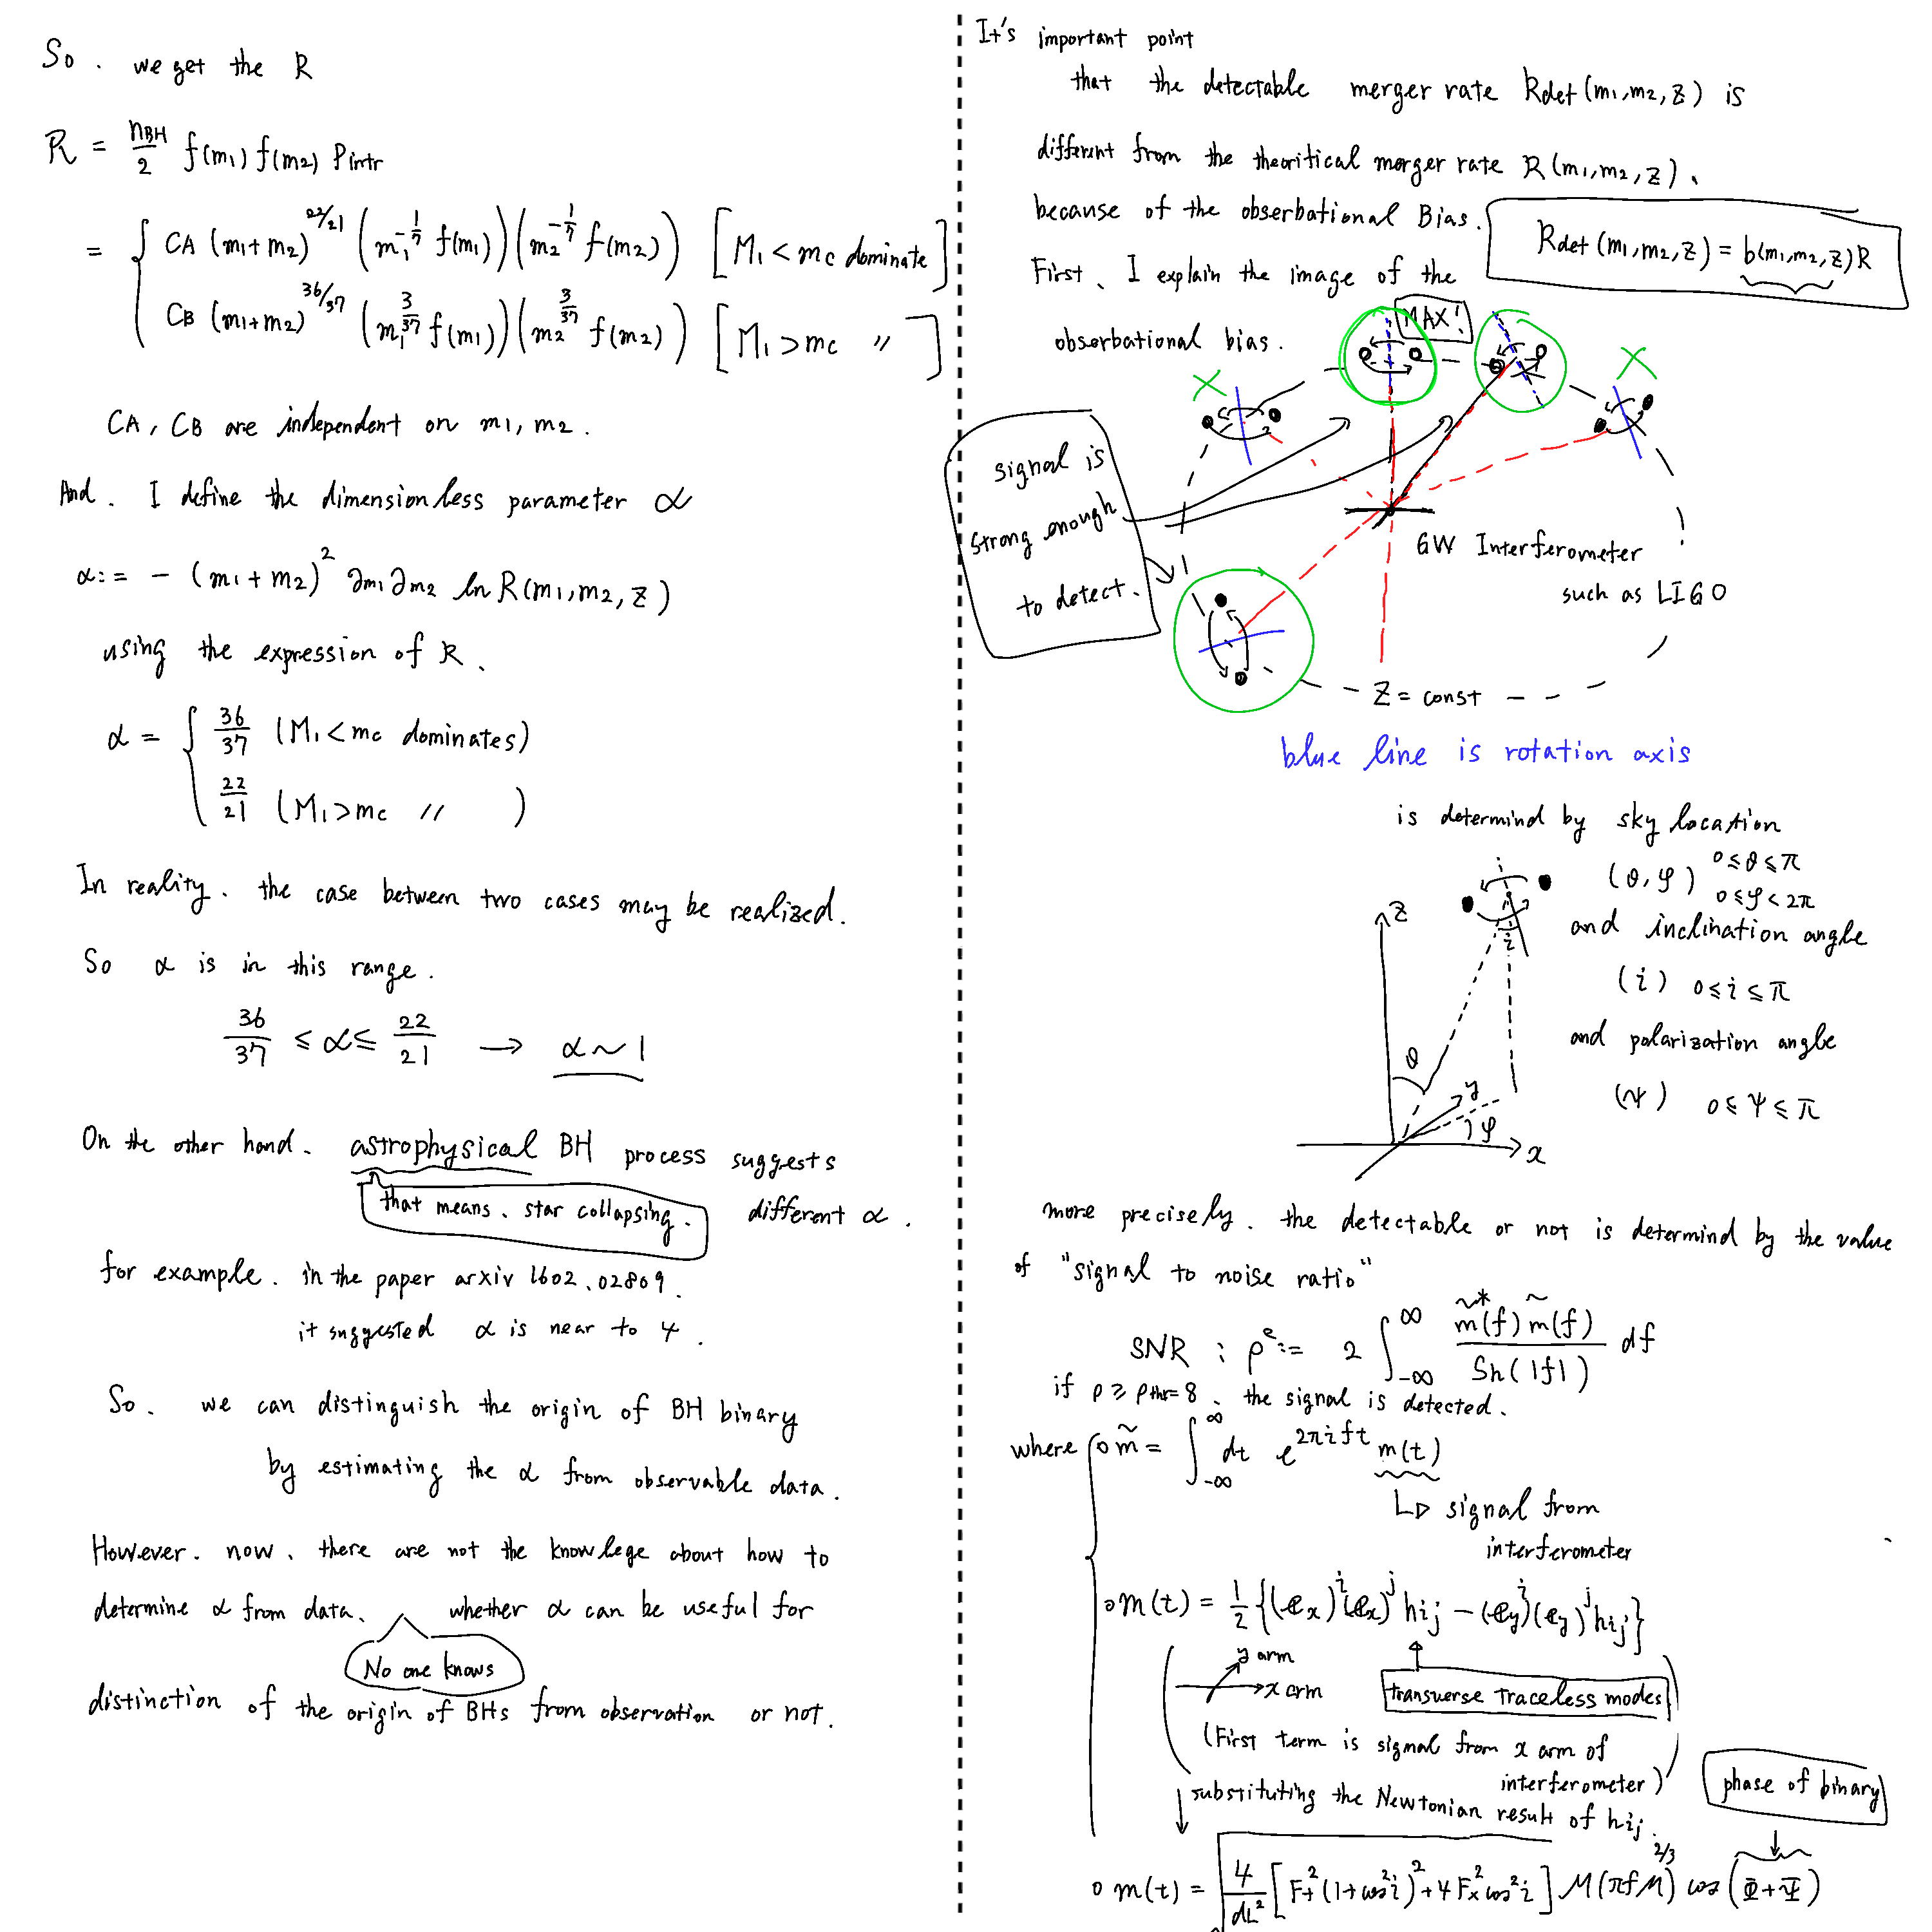 So. we get the R
R = nBH/2 f(m1) f(m2) Pintr
= { CA (m1+m2)^22/21 (m1^-1/7 f(m1)) (m2^-1/7 f(m2)) [M1 < mc dominate]
CB (m1+m2)^36/37 (m1^3/37 f(m1)) (m2^3/37 f(m2)) [M1 > mc 〃 ]
CA, CB are independent on m1, m2.
And. I define the dimensionless parameter α
α := - (m1+m2)^2 ∂m1 ∂m2 ln R(m1, m2, z)
using the expression of R.
α = { 36/37 (M1 < mc dominates)
22/21 (M1 > mc 〃 )
In reality. the case between two cases may be realized.
So α is in this range.
36/37 ≤ α ≤ 22/21 → α ~ 1
On the other hand. astrophysical BH process suggests
that means. star collapsing. different α.
for example. in the paper arxiv 1602.02809.
it suggested α is near to 4.
So. we can distinguish the origin of BH binary
by estimating the α from observable data.
However. now. there are not the knowlege about how to
determine α from data. whether α can be useful for
No one knows
distinction of the origin of BHs from observation or not.
It's important point
that the detectable merger rate Rdet (m1, m2, z) is
different from the theoritical merger rate R(m1, m2, z).
because of the obserbational Bias.
Rdet (m1, m2, z) = b(m1, m2, z) R
First. I explain the image of the
obserbational bias.
MAX!
signal is
strong enough
to detect.
GW Interferometer
such as LIGO
z = const
blue line is rotation axis
is determind by sky location
(θ, φ) 0 ≤ θ ≤ π
0 ≤ φ < 2π
and inclination angle
(i) 0 ≤ i ≤ π
and polarization angle
(ψ) 0 ≤ ψ ≤ π
z
i
θ
y
φ
x
more precisely. the detectable or not is determind by the value
of "signal to noise ratio"
SNR : ρ^2 := 2 ∫_-∞^∞ m̃*(f) m̃(f) / Sh(|f|) df
if ρ ≥ ρthr = 8. the signal is detected.
where { ○ m̃ = ∫_-∞^∞ dt e^2πift m(t)
↳ signal from
interferometer
○ m(t) = 1/2 {(ex)^i (ex)^j hij - (ey)^i (ey)^j hij}
y arm
x arm
transverse traceless modes
(First term is signal from x arm of
interferometer)
substituting the Newtonian result of hij.
phase of binary
○ m(t) = √ 4/dL^2 [F+^2 (1+cos^2 i)^2 + 4 F×^2 cos^2 i] M (πfM)^2/3 cos (Φ + Ψ)